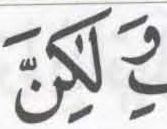 بِ وَلَٰكِنَّ